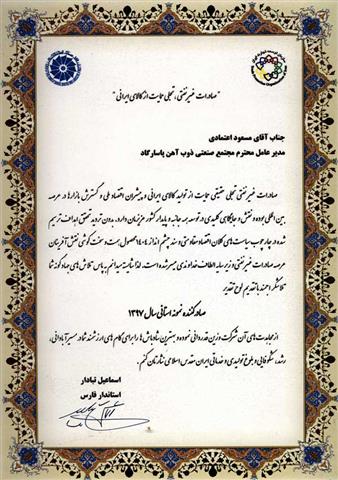 "صادرات غیرنفتی، تجلی حمایت از کالای ایرانی"
جناب آقای مسعود اعتمادی
مدیر عامل محترم مجتمع صنعتی ذوب آهن پاسارگاد
صادرات غیرنفتی تجلی حقیقی حمایت از تولید کالای ایرانی و پیشران اقتصاد ملی و گسترش بازارها در عرصه
بین المللی بوده و نقش و جایگاهی کلیدی در توسعه همه جانبه و پایدار کشور عزیزمان دارد. بدون تردید تحقق اهداف ترسیم
شده در چارچوب سیاست‌های کلان اقتصاد مقاومتی و سند چشم انداز ۱۴۰۴ محصول همت و سخت کوشی نقش آفرینان
عرصه صادرات غیرنفتی و زیر سایه الطاف خداوندی میسر شده است. لذا شایسته میدانم به پاس تلاش‌های جهادگونه شما
تلاشگر ارجمند با تقدیم لوح تقدیر
صادرکننده نمونه استانی سال ۱۳۹۷
از مجاهدت‌های آن شرکت وزین قدردانی نموده و بهترین شادباش‌ها را برای گام های ارزشمندتان در مسیر آبادانی،
رشد، شکوفایی و بلوغ تولیدی و خدماتی ایران مقدس اسلامی نثارتان کنم.
اسماعیل تبادار
استاندار فارس